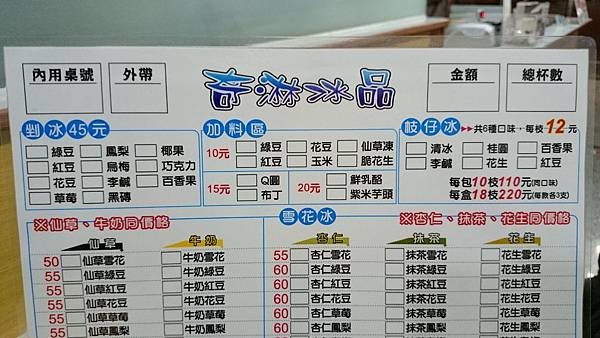 內用桌號 外帶 奇淋冰品 金額 總杯數
剉冰45元
綠豆 鳳梨 椰果
紅豆 烏梅 巧克力
花豆 李鹹 百香果
草莓 黑磚
加料區
10元 綠豆 花豆 仙草凍
紅豆 玉米 脆花生
15元 Q圓 20元 鮮乳酪
布丁 紫米芋頭
枝仔冰 ▶▶共6種口味,每枝12元
清冰 桂圓 百香果
李鹹 花生 紅豆
每包10枝110元(同口味)
每盒18枝220元(每款各3支)
雪花冰
※仙草、牛奶同價格 ※杏仁、抹茶、花生同價格
仙草 牛奶 杏仁 抹茶 花生
50 仙草雪花 牛奶雪花 55 杏仁雪花 抹茶雪花 花生雪花
55 仙草綠豆 牛奶綠豆 60 杏仁綠豆 抹茶綠豆 花生綠豆
55 仙草紅豆 牛奶紅豆 60 杏仁紅豆 抹茶紅豆 花生紅豆
55 仙草花豆 牛奶花豆 60 杏仁花豆 抹茶花豆 花生花豆
55 仙草草莓 牛奶草莓 60 杏仁草莓 抹茶草莓 花生草莓
55 仙草鳳梨 牛奶鳳梨 60 杏仁鳳梨 抹茶鳳梨 花生鳳梨